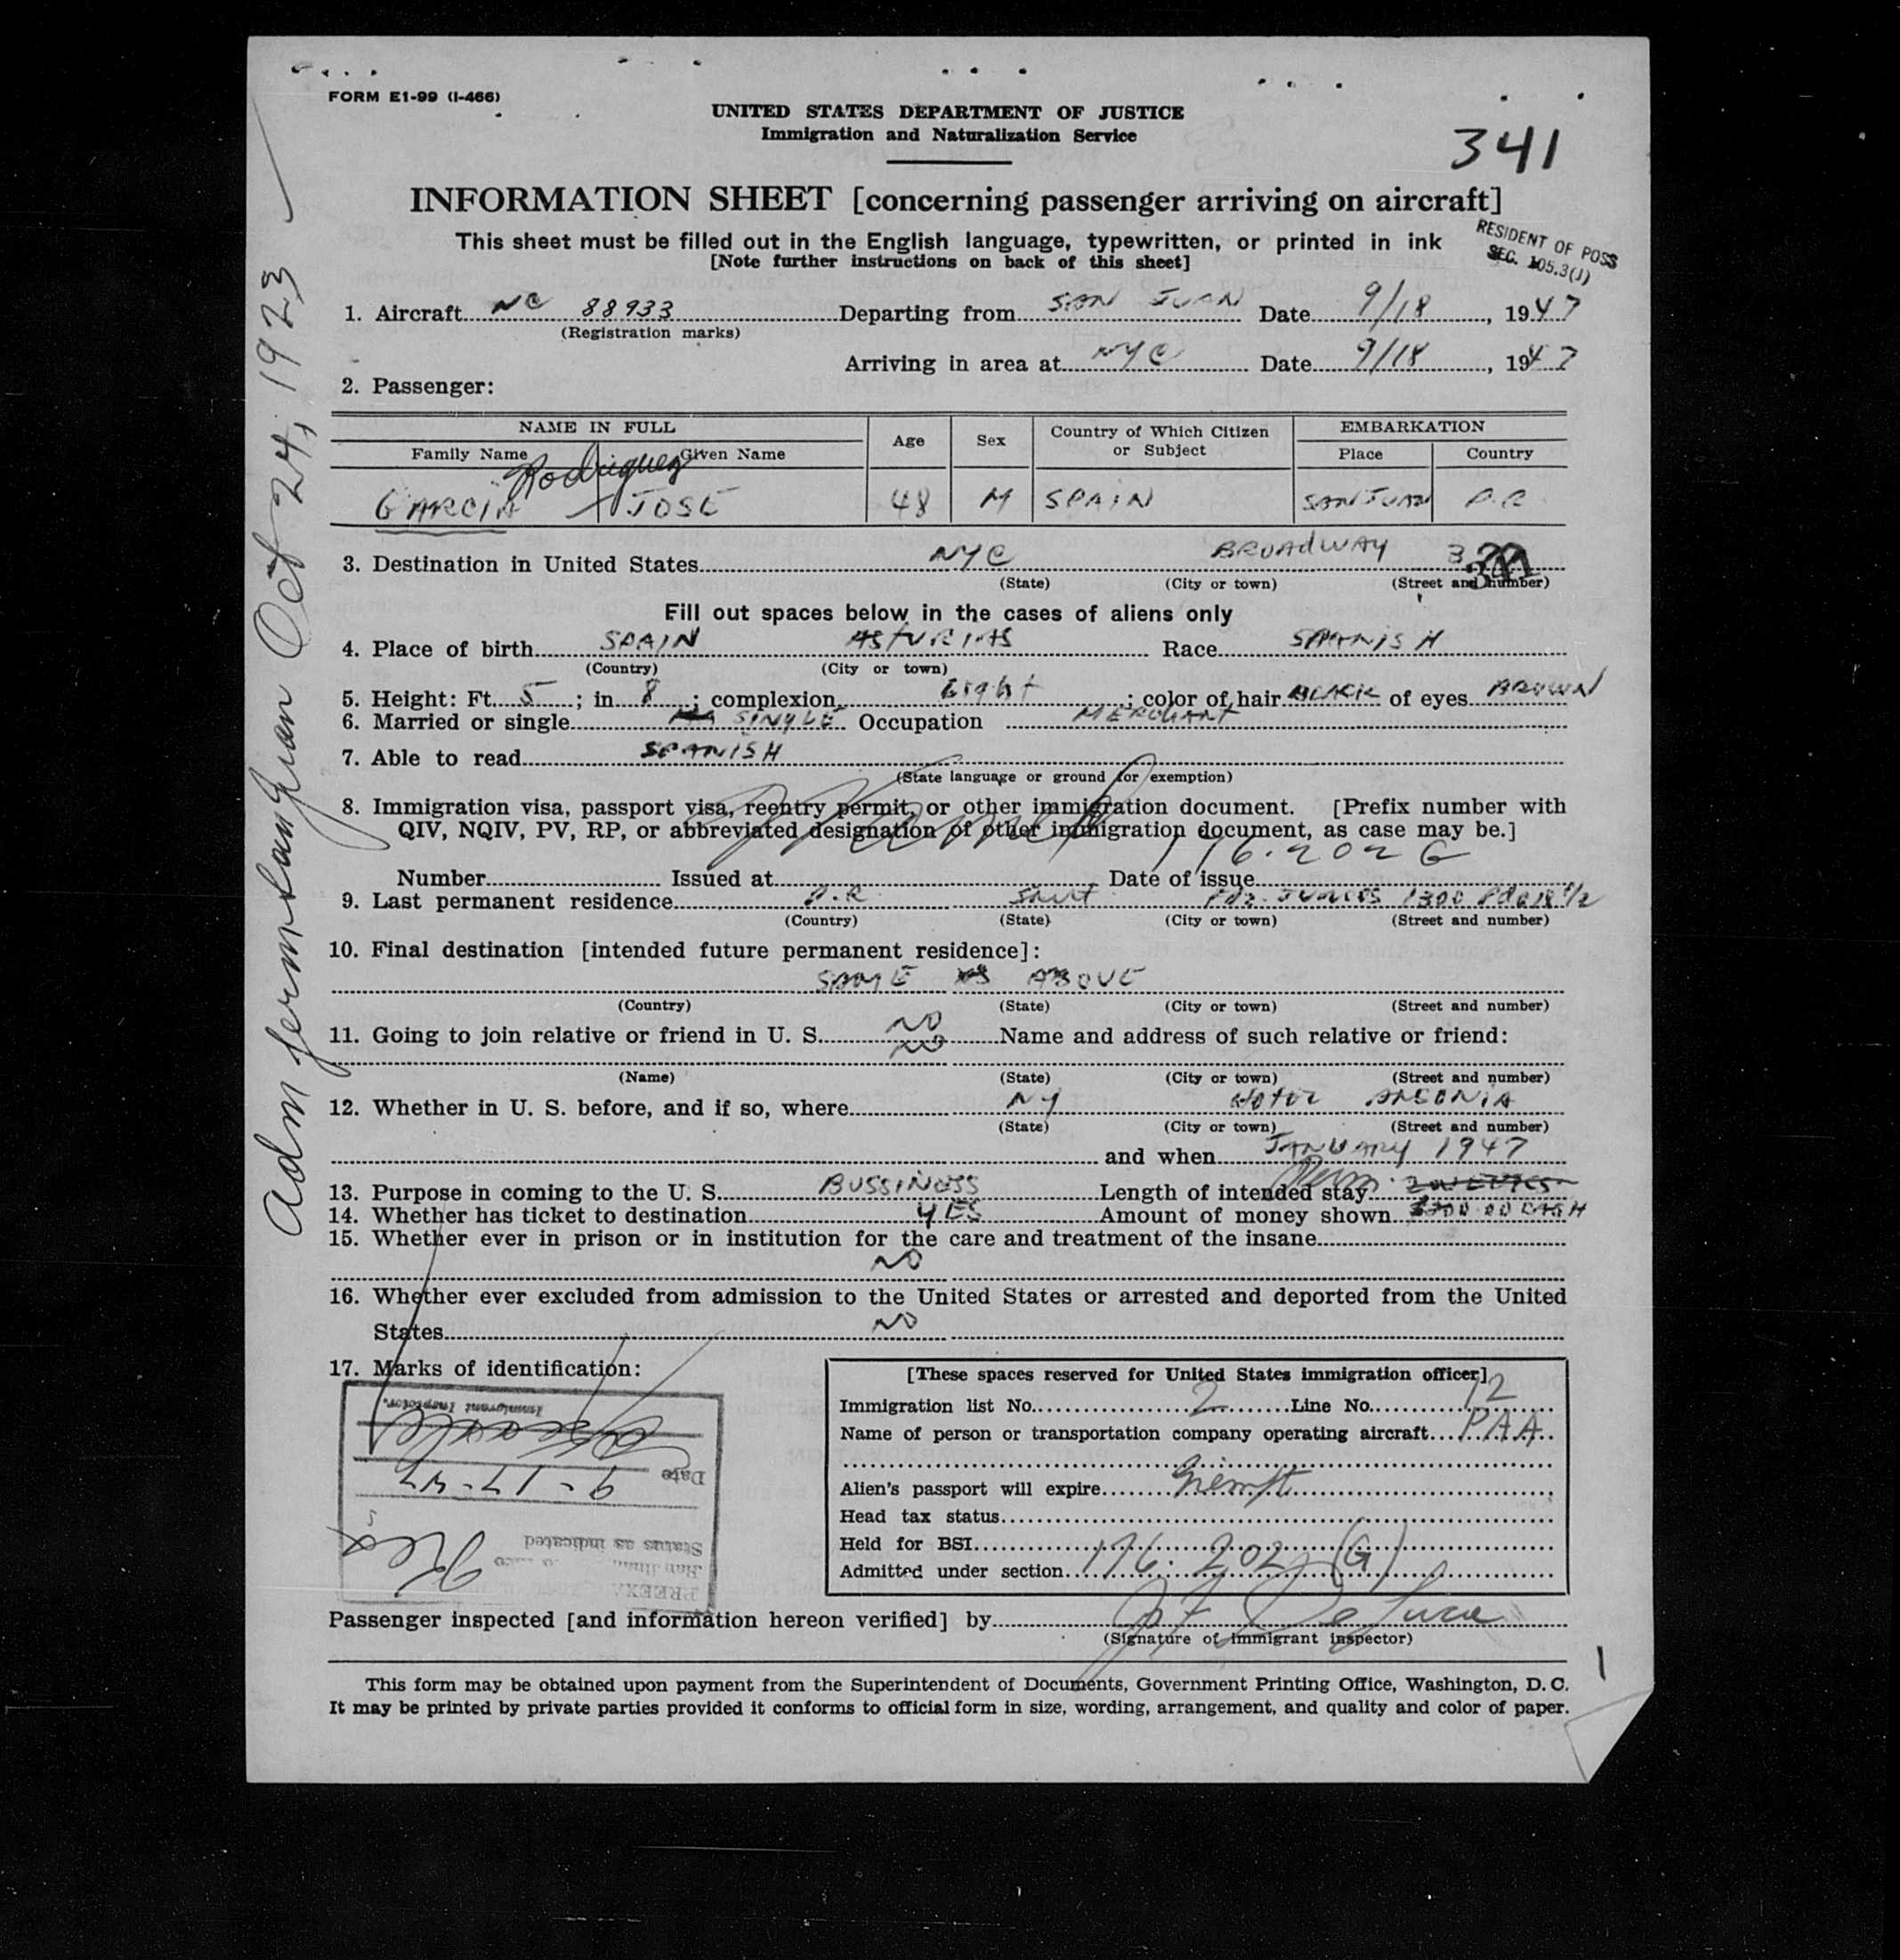 FORM E1-99 (I-466)
UNITED STATES DEPARTMENT OF JUSTICE
Immigration and Naturalization Service
341
INFORMATION SHEET [concerning passenger arriving on aircraft]
This sheet must be filled out in the English language, typewritten, or printed in ink
[Note further instructions on back of this sheet]
RESIDENT OF POSS
SEC. 105.3(J)
1. Aircraft NC 88933 Departing from SAN JUAN Date 9/18, 1947
(Registration marks)
Arriving in area at NYC Date 9/18, 1947
2. Passenger:
NAME IN FULL Age Sex Country of Which Citizen or Subject EMBARKATION
Family Name Given Name Place Country
Rodriguez
GARCIA JOSE 48 M SPAIN SAN JUAN P.R
3. Destination in United States NYC BROADWAY
(State) (City or town) (Street and number)
Fill out spaces below in the cases of aliens only
4. Place of birth SPAIN ASTURIAS Race SPANISH
(Country) (City or town)
5. Height: Ft. 5; in 8; complexion Light; color of hair BLACK of eyes BROWN
6. Married or single SINGLE Occupation MERCHANT
7. Able to read SPANISH
(State language or ground for exemption)
8. Immigration visa, passport visa, reentry permit, or other immigration document. [Prefix number with
QIV, NQIV, PV, RP, or abbreviated designation of other immigration document, as case may be.]
176.202 G
Number Issued at Date of issue
9. Last permanent residence P.R. Sant Fdz. Juncos 1300 Pda 18 1/2
(Country) (State) (City or town) (Street and number)
10. Final destination [intended future permanent residence]:
SAME AS ABOVE
(Country) (State) (City or town) (Street and number)
11. Going to join relative or friend in U. S. NO Name and address of such relative or friend:
NO
(Name) (State) (City or town) (Street and number)
12. Whether in U. S. before, and if so, where NY Hotel ANSONIA
(State) (City or town) (Street and number)
and when JANUARY 1947
13. Purpose in coming to the U. S. BUSSINESS Length of intended stay? Perm. 2 WEEKS
14. Whether has ticket to destination YES Amount of money shown $300.00 CASH
15. Whether ever in prison or in institution for the care and treatment of the insane
NO
16. Whether ever excluded from admission to the United States or arrested and deported from the United
States NO
17. Marks of identification:
PREEXA
San Juan,
Status as indicated
Date 9-17-47
Immigrant Inspector.
[These spaces reserved for United States immigration officer]
Immigration list No. 2 Line No. 12
Name of person or transportation company operating aircraft PAA
Alien's passport will expire Exempt
Head tax status
Held for BSI
Admitted under section 176.202 (G)
Passenger inspected [and information hereon verified] by De Luca
(Signature of immigrant inspector)
This form may be obtained upon payment from the Superintendent of Documents, Government Printing Office, Washington, D. C.
It may be printed by private parties provided it conforms to official form in size, wording, arrangement, and quality and color of paper.
Adm Perm San Juan Oct 24, 1923